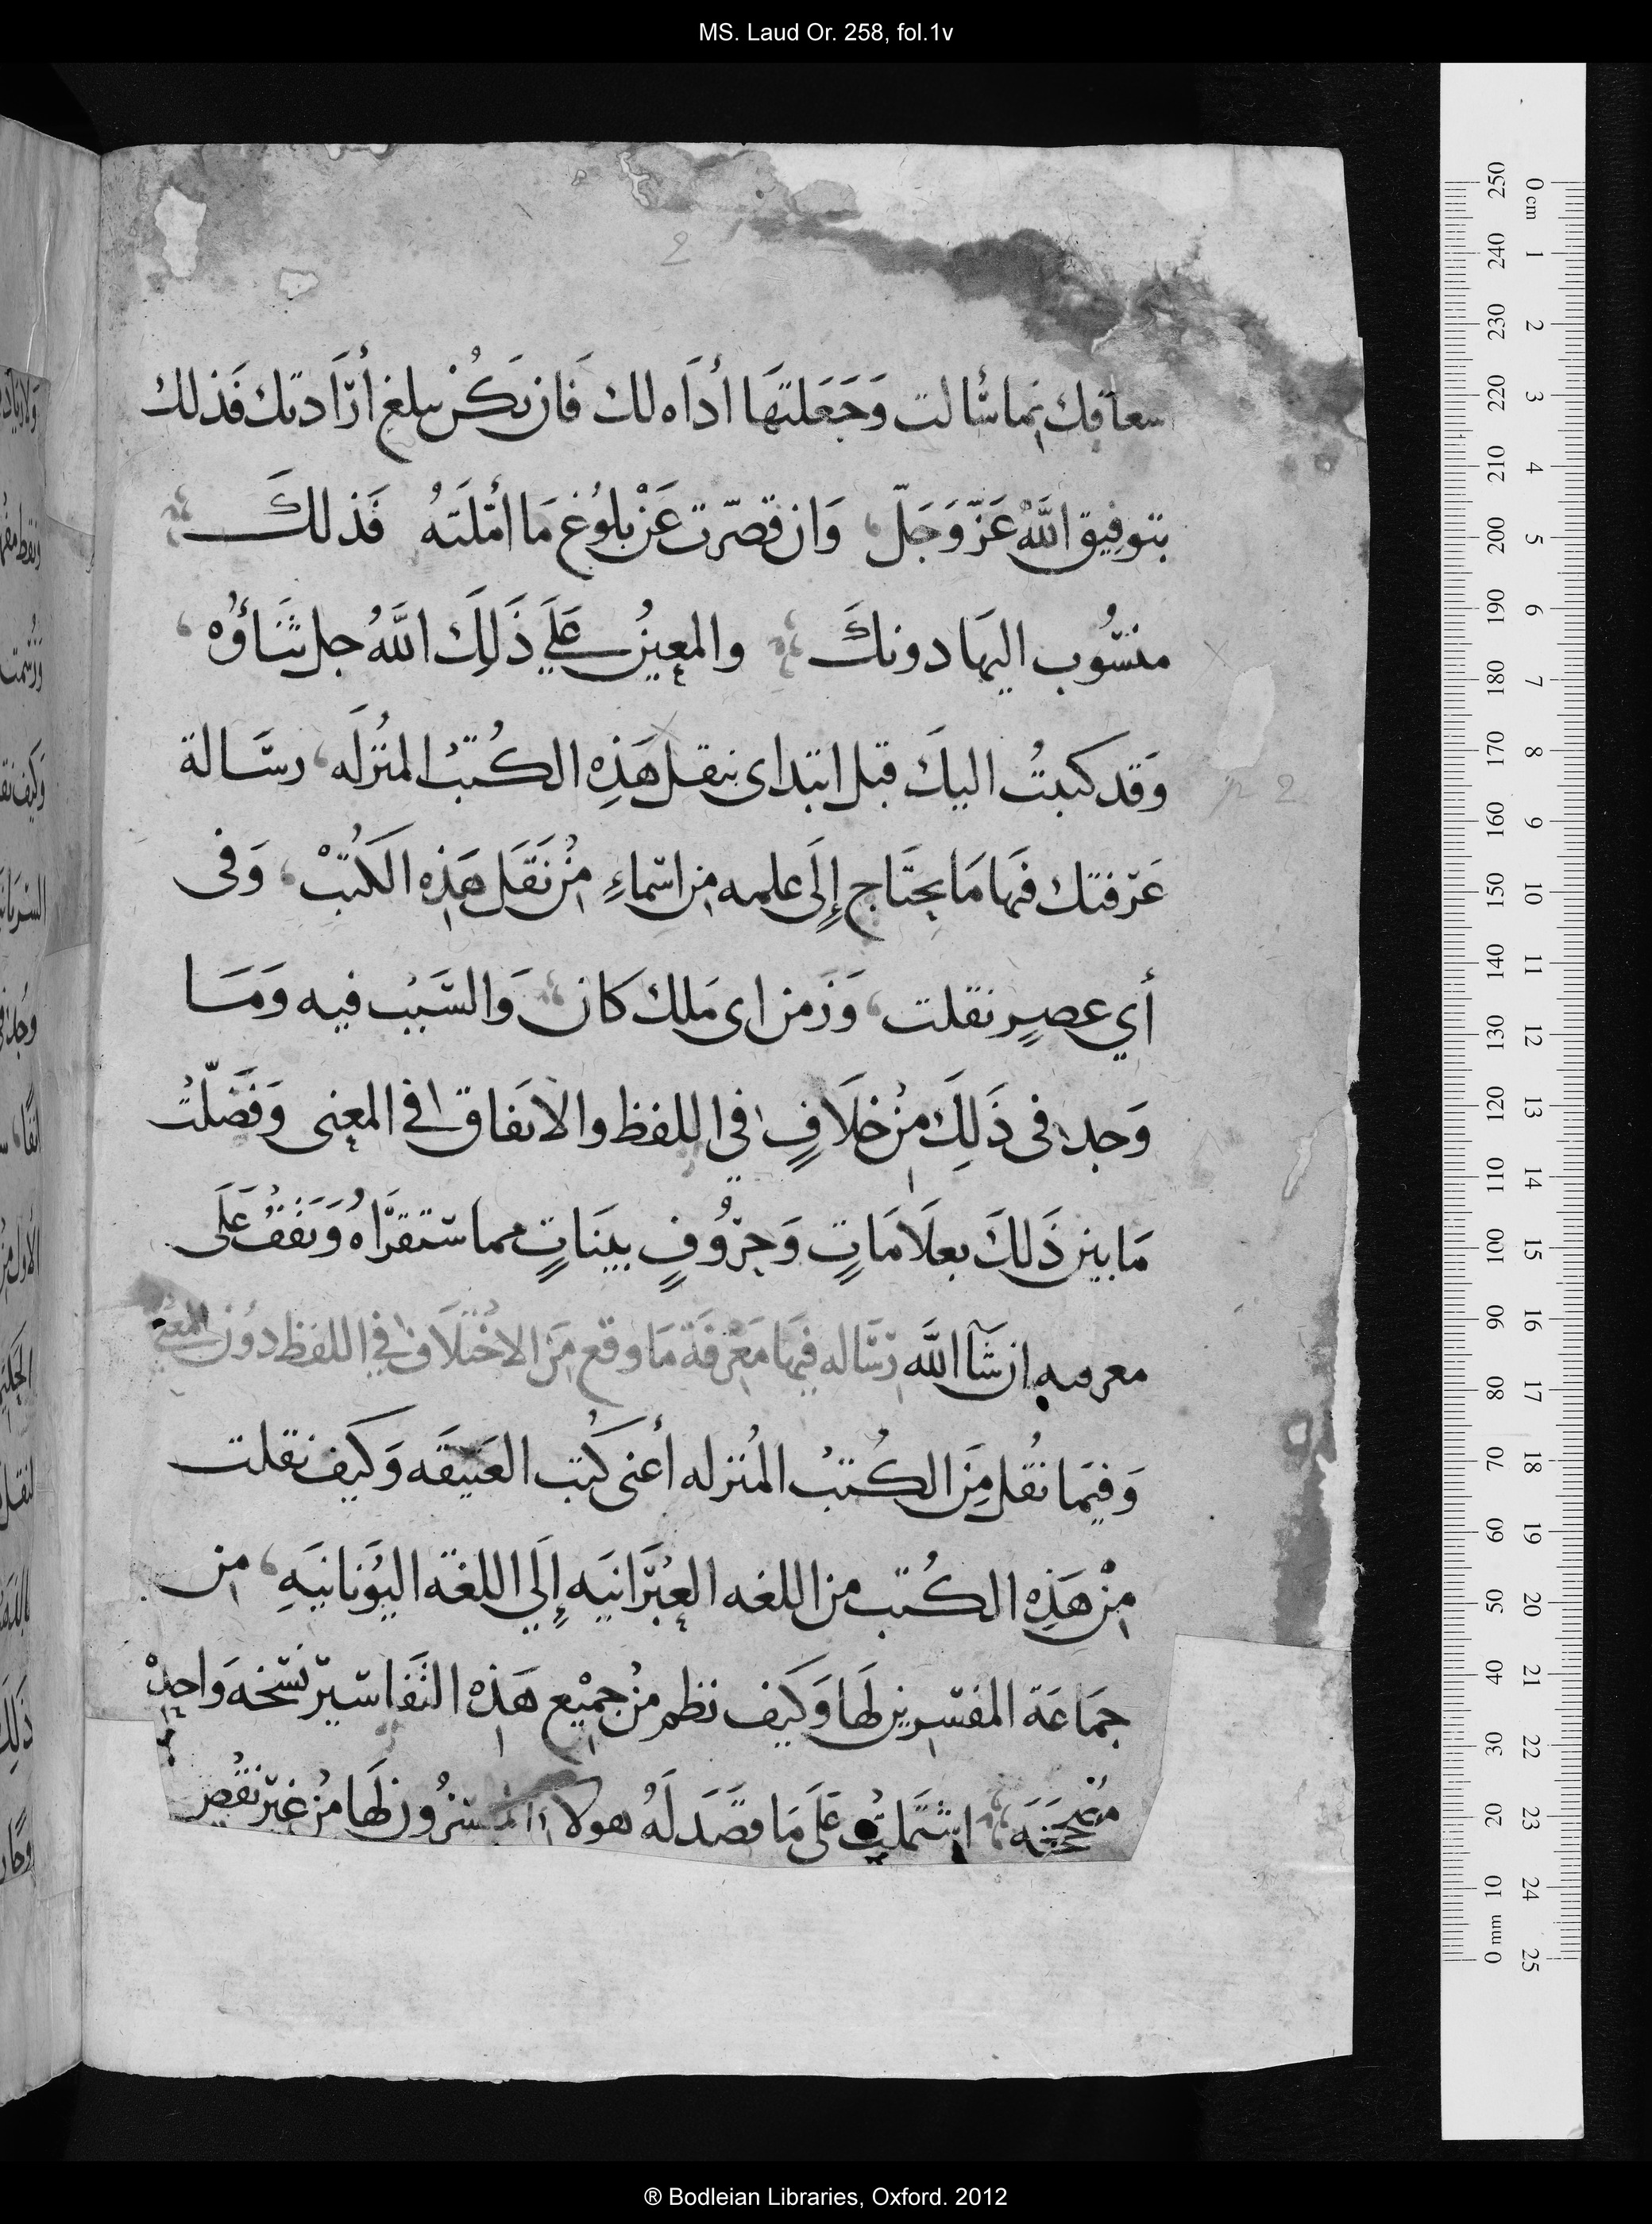 MS. Laud Or. 258, fol.1v
بما سالت وَجَعَلتهَا أداَه لك فَان تكُنْ تبلغ أرَادتك فَذلك
بتوفِيق اللَّهُ عَزّ وَجَلّ، وَان قصّرت عَنْ بلوُغ مَا أمّلتَهُ فَذلكَ
منسُوب اليهَا دونكَ والمعِينُ عَلَي ذَلِكَ اللَّهُ جل ثَنَاؤُه،
وَقد كتبتُ اليكَ قبل ابتداى بنقل هَذِه الكُتبُ المنُزلَه، رسَالة
عَرّفتك فيهَا مَا يحتَاج إِلَى علمه مِن اسمَاءِ مِنُ نَقَل هَذِه الكتُبْ، وَفى
أي عصرٍ نقلت، وَزَمن اى مَلك كان، وَالسَبَبُ فيه وَمَا
وَجدا فى ذَلِكَ مِنُ خلَافٍ فيِ اللفظ والاتفاق فيِ المعِنى وَفَصّلتُ
مَا بين ذَلكَ بعلَامَاتٍ وَحرُوفٍ بينَاتٍ مما ستَقرَاهُ وَتَقفُ عَلَى
معرفته ان شَآ اللَّه رسَاله فيهَا مَعْرفَة مَا وقع مِنَ الاخْتلَاف فيِ اللفظ دوُن المعنَي
وَفيمَا نقُل مِنَ الكُتبُ المنُزله أعنى كُتب العتيقَه وَكيَف نقلت
مِنْ هَذِه الكُتب من اللغه العبْرَانيَه إِلَي اللغَة اليوُنانيَهِ، مِن
جمَاعَة المفسرين لهَا وَكيَف نظم مِنُ جميْع هَذه التفَاسير نسْخه وَاحِدْ
مُصَحَحَه، اشتَملتْ عَلَى مَا قصَدَ لَهُ هولا المفسرُون لهَا مِنُ غيَر نَقُص
2
2
® Bodleian Libraries, Oxford. 2012